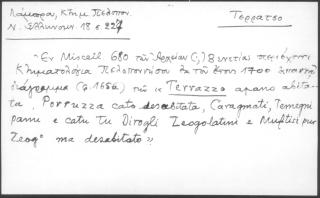 Λάμπρου, Κτημ. Πελοπον.
Ν. Ελληνομν. 18 σ. 227
Τερράτσο
"Εν Miscell 680 των Αρχείων Βενετίας περιέχεται
Κτηματολόγια Πελοποννήσου εκ του έτους 1700
διάγραμμα των " Terrazzo apano abita-
ta, Porruzza cato desabitata, Caragmati, Temegni
panu e catu Tu Dirogli Zeogolatini e Muftisi pur
Zeog° ma desabitato".